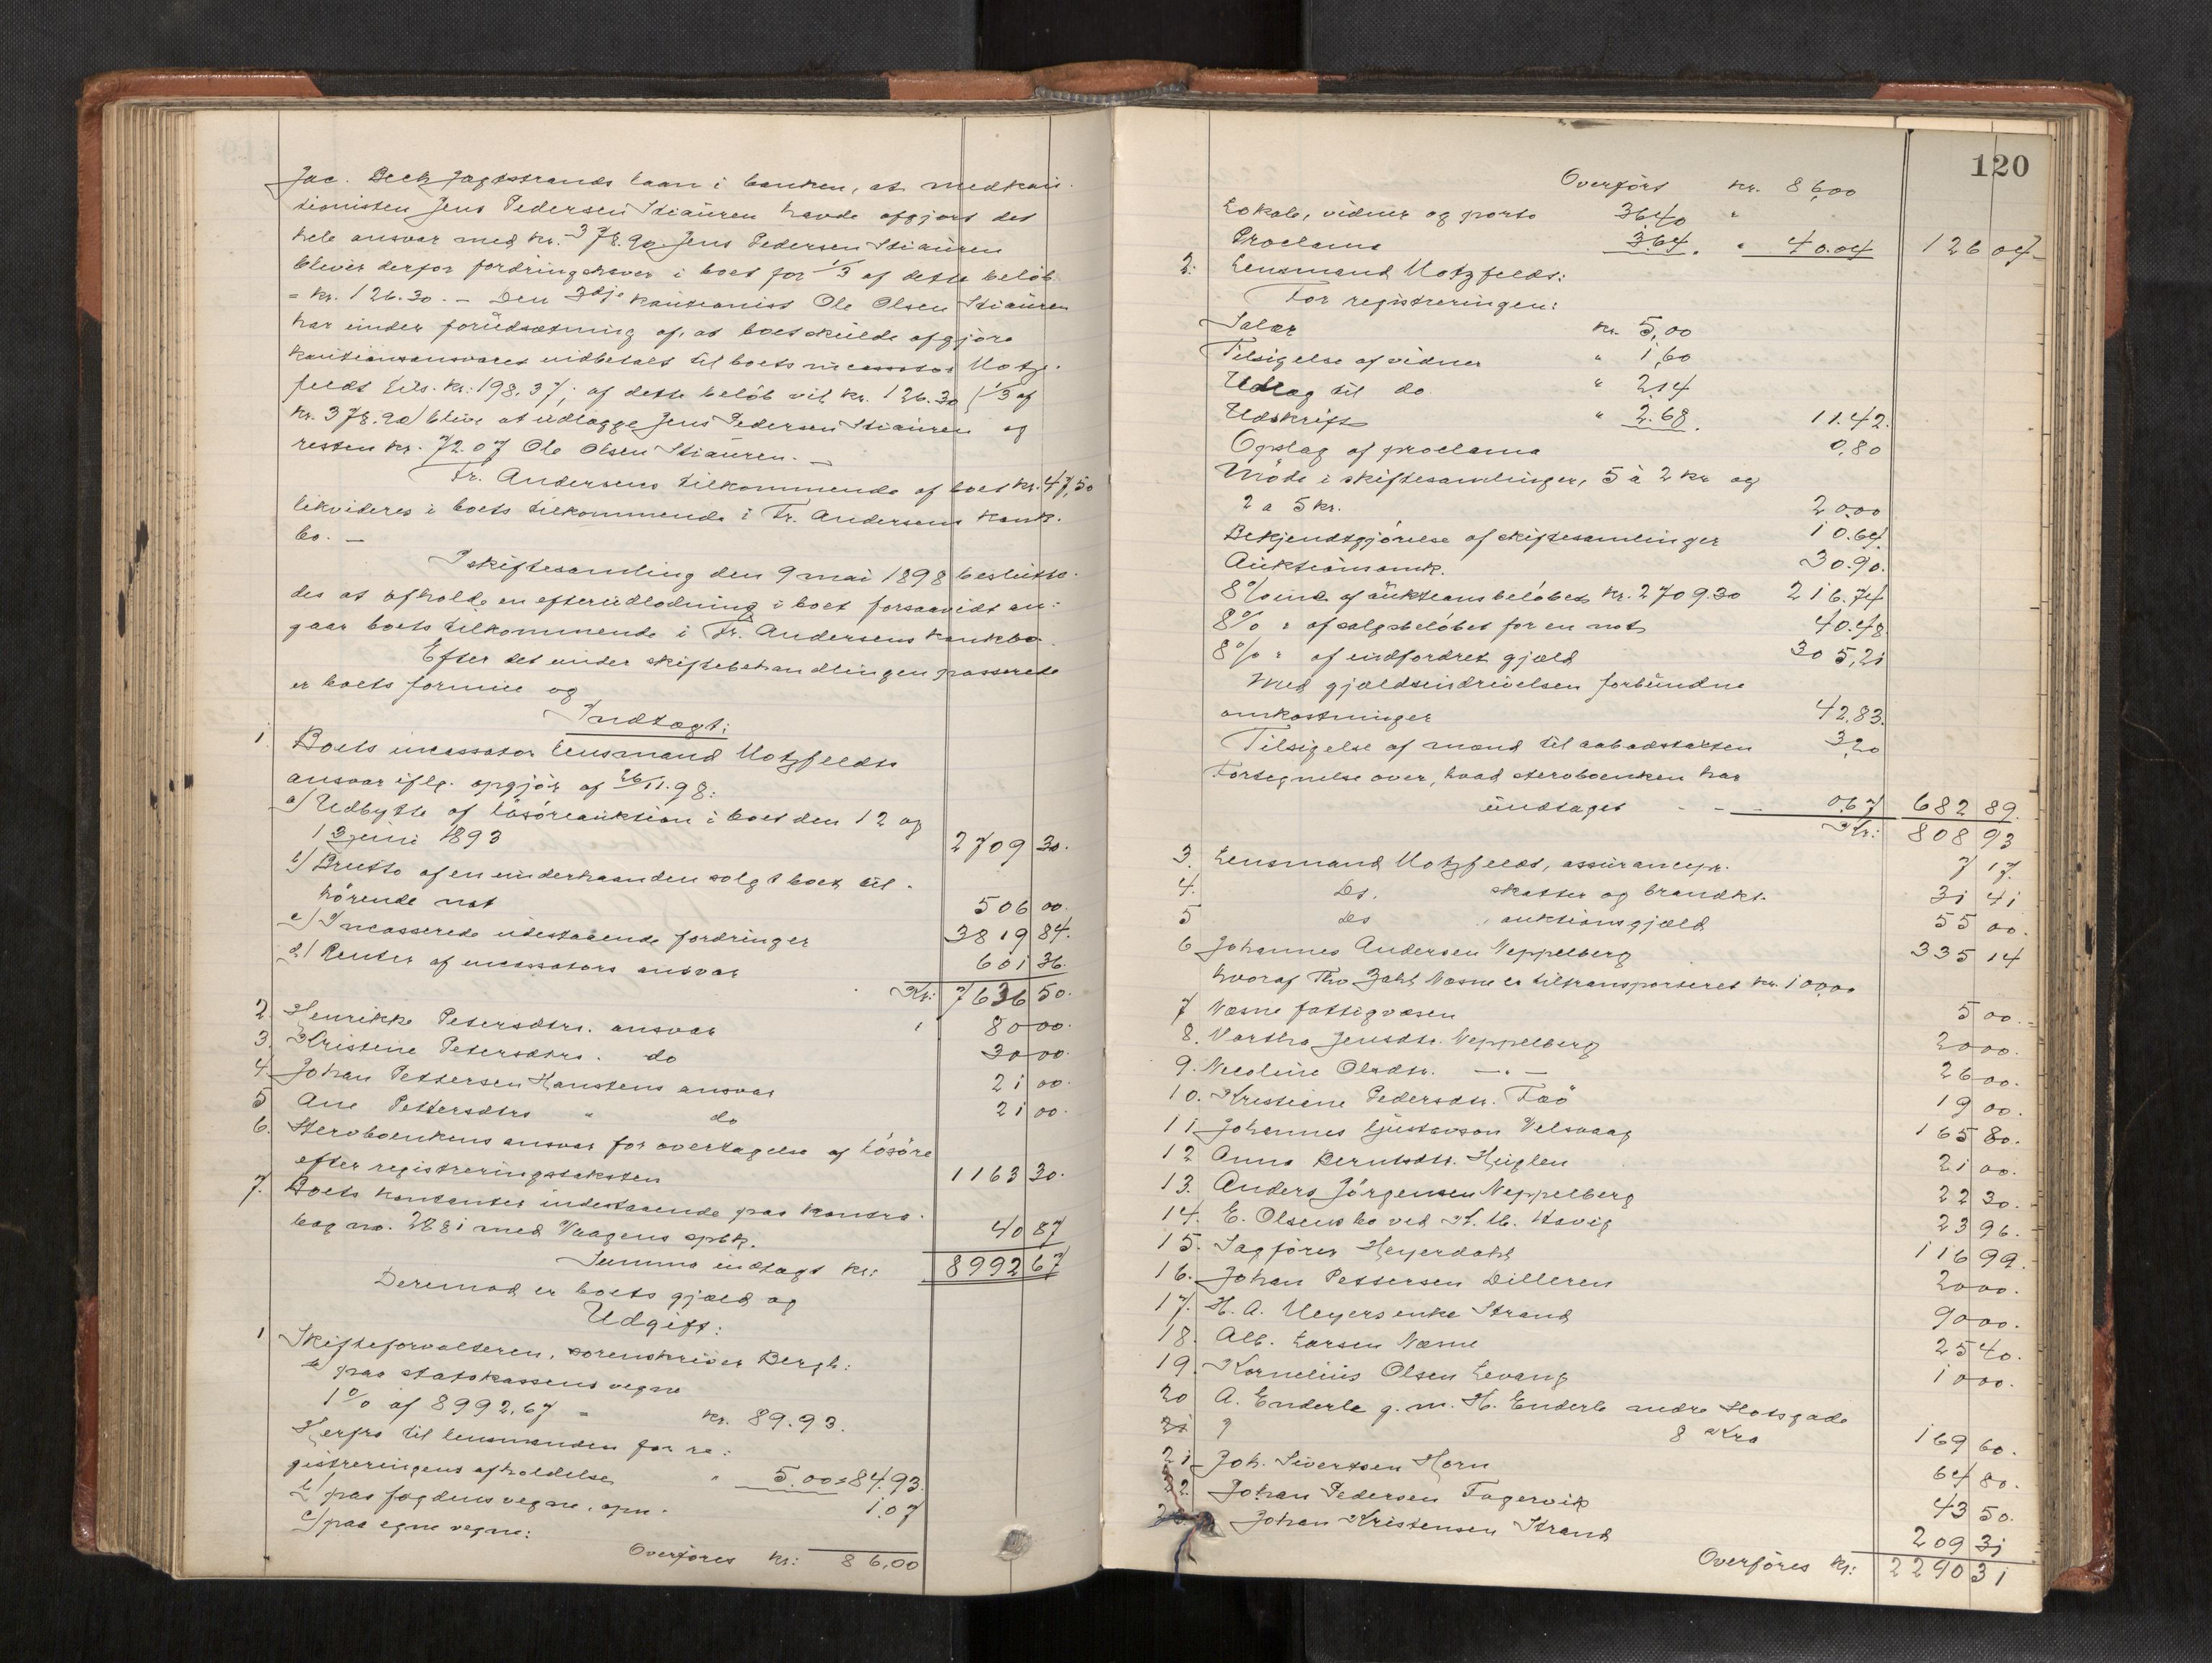 Jac. Bech Jagtstrands laan i banken, at medkau-
tionisten Jens Pedersen Stiauren havde afgjort det
hele ansvar med kr. 378.90. Jens Pedersen Stiauren
bliver derfor fordringshaver i boet for 1/3 af dette beløb
= kr. 126.30. – Den 3dje kautionist Ole Olsen Stiauren
har under forudsætning af, at boet skulde afgjøre
kautionsansvaret indbetalt til boets incassator Motz-
feldt kr. 198.37; af dette beløb vil kr. 126.30 (1/3 af
kr. 378.90) blive at udlægge Jens Pedersen Stiauren og
resten kr. 72.07 Ole Olsen Stiauren. –
Fr. Andersens tilkommende af boet kr. 47,50
likvideres i boets tilkommende i Fr. Andersens konk.
bo. –
I skiftesamling den 9 mai 1898 beslutte-
des at afholde en efterudlodning i boet forsaavidt an-
gaar boets tilkommende i Fr. Andersens konkbo.
Efter det under skiftebehandlingen passerede
er boets formue og
Indtægt:
1. Boets incassator lensmand Motzfeldts
ansvar iflg. opgjør af 26/11.98:
a) Udbytte af løsøreauktion i boet den 12 og
13 juni 1893 2709 30.
b) Brutto af en underhaanden solgt boet til-
hørende not 506 00.
c) Incasserede udestaaende fordringer 3819 84.
d) Renter af incassators ansvar 601 36.
Kr: 7636 50.
2. Henrikke Petersdtrs. ansvar 80 00.
3. Kristine Petersdtrs. do 30 00.
4. Johan Pettersen Hanstens ansvar 21 00.
5 Ane Pettersdtrs " do 21 00.
6. Stervboenkens ansvar for overtagelse af løsøre
efter registreringstaksten 1163 30.
7. Boets kontanter indestaaende paa kontra-
bog no. 2881 med Vaagens spbk. 40 87
Summa indtægt kr: 8992 67
Derimod er boets gjæld og
Udgift:
1 Skifteforvalteren, sorenskriver Bergh:
a) paa statskassens vegne
1 % af 8992.67 = kr. 89.93.
Herfra til lensmanden for re-
gistreringens afholdelse " 5.00 = 84.93.
b) paa fogdens vegne, opn. 1.07
c) paa egne vegne:
Overføres kr: 86,00
120
Overført kr. 86,00
Lokale, vidner og porto 36.40 "
Proclama 3.64. " 40.04 126 04
2. Lensmand Motzfeldt:
For registreringen:
Salær kr. 5,00
Tilsigelse af vidner " 1,60
Udlæg til do. " 2.14
Udskrift " 2.68. 11.42.
Opslag af proclama 0,80
Møde i skiftesamlinger, 5 à 2 kr og
2 a 5 kr. 20,00
Bekjendtgjørelse af skiftesamlinger 10.64.
Auktionsomk. 30.90.
8 % ink. af auktionsbeløbet kr. 2709.30 216.74
8 % " af salgsbeløbet for en not 40.48
8 % " af indfordret gjæld 305,21
Med gjældsinddrivelsen forbundne
omkostninger 42,83.
Tilsigelse af mænd til aabodstakten 3,20
Fortegnelse over, hvad stervboenken har
undtaget - - - 0.67 682 89.
Kr: 808 93
3. Lensmand Motzfeldt, assurancepr. 7 17.
4. Ds. skatter og brandkt. 31 41
5 ds , auktionsgjæld 55 00.
6 Johannes Andersen Neppelberg 335 14
hvoraf Tho Zahl Næsne er tiltransporteret kr. 100,00
7 Næsne fattigvæsen 5 00.
8. Martha Jensdtr. Neppelberg 20 00.
9. Nicoline Olsdtr. –"– 26 00.
10. Kristiane Pedersdtr. Faø 19 00.
11 Johannes Gjustavson Velsvaag 165 80.
12 Anna Berntsdtr. Huglen 21 00.
13. Anders Jørgensen Neppelberg 22 30.
14. E. Olsens bo ved K. M. Havig 23 96.
15. Sagfører Heyerdahl 116 99.
16. Johan Pettersen Dilleren 20 00.
17. H. A. Meyers enke Strand 90 00.
18. Alb. Larsen Næsne 25 40.
19. Kornelius Olsen Levang 10 00.
20 A. Enderle g. m. H. Enderle nedre Slotsgade
21 ? 8 Kra 169 60.
21 Joh. Sivertsen Horn 64 80.
22. Johan Pedersen Fagervik 43 50.
23 Johan Kristensen Strand 209 31
Overføres kr: 2290 31